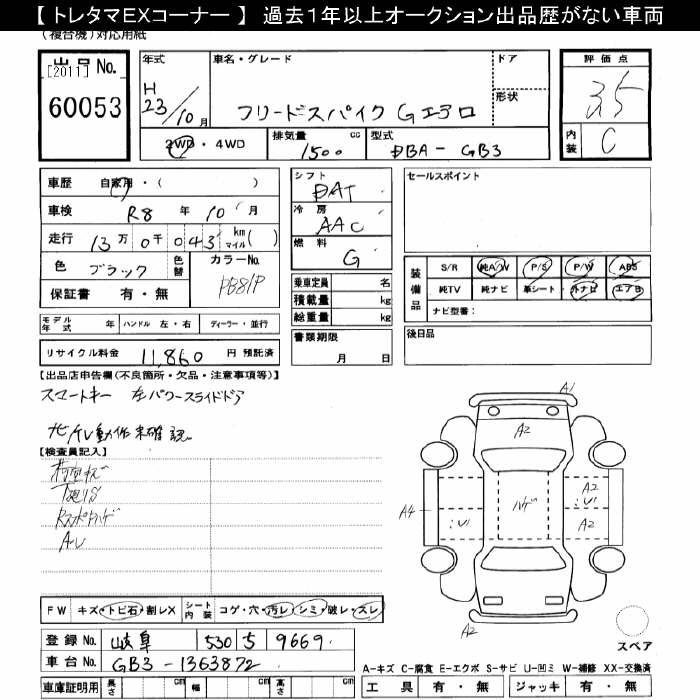 【 トレタマEXコーナー 】 過去１年以上オークション出品歴がない車両
(複合機)対応用紙
出品 No.
[2011]
60053
年式
H
23/10月
車名・グレード
フリードスパイク Gエアロ
ドア
形状
2WD・4WD
排気量 cc
1500
型式
DBA - GB3
評価点
3.5
内装
C
車歴 自家用・( )
車検 R8 年 10 月
走行 13万 0千 043 km マイル ( )
色 ブラック 色替
カラーNo.
PB81P
保証書 有・無
シフト
DAT
冷房
AAC
燃料
G
乗車定員 名
積載量 kg
総重量 kg
セールスポイント
装備品
S/R 純A/W P/S P/W ABS
純TV 純ナビ 革シート 外ナビ エアB
ナビ型番:
モデル年式 年 ハンドル 左・右 ディーラー・並行
書類期限
月 日
後日品
リサイクル料金 11,860 円 預託済
【出品店申告欄(不良箇所・欠品・注意事項等)】
スマートキー 左パワースライドドア
ナビ/TV動作未確認
【検査員記入】
A-U
A1
A2
A4
U1
A2
U1
A2
A2
スペア
FW キズ・トビ石・割レX シート内装 コゲ・穴・汚レ・シミ・破レ・スレ
登録No. 岐阜 530 5 9669
車台No. GB3-1363872
車庫証明用 長さ cm 幅 cm 高さ cm
A-キズ C-腐食 E-エクボ S-サビ U-凹ミ W-補修 XX-交換済
工具 有・無 ジャッキ 有・無